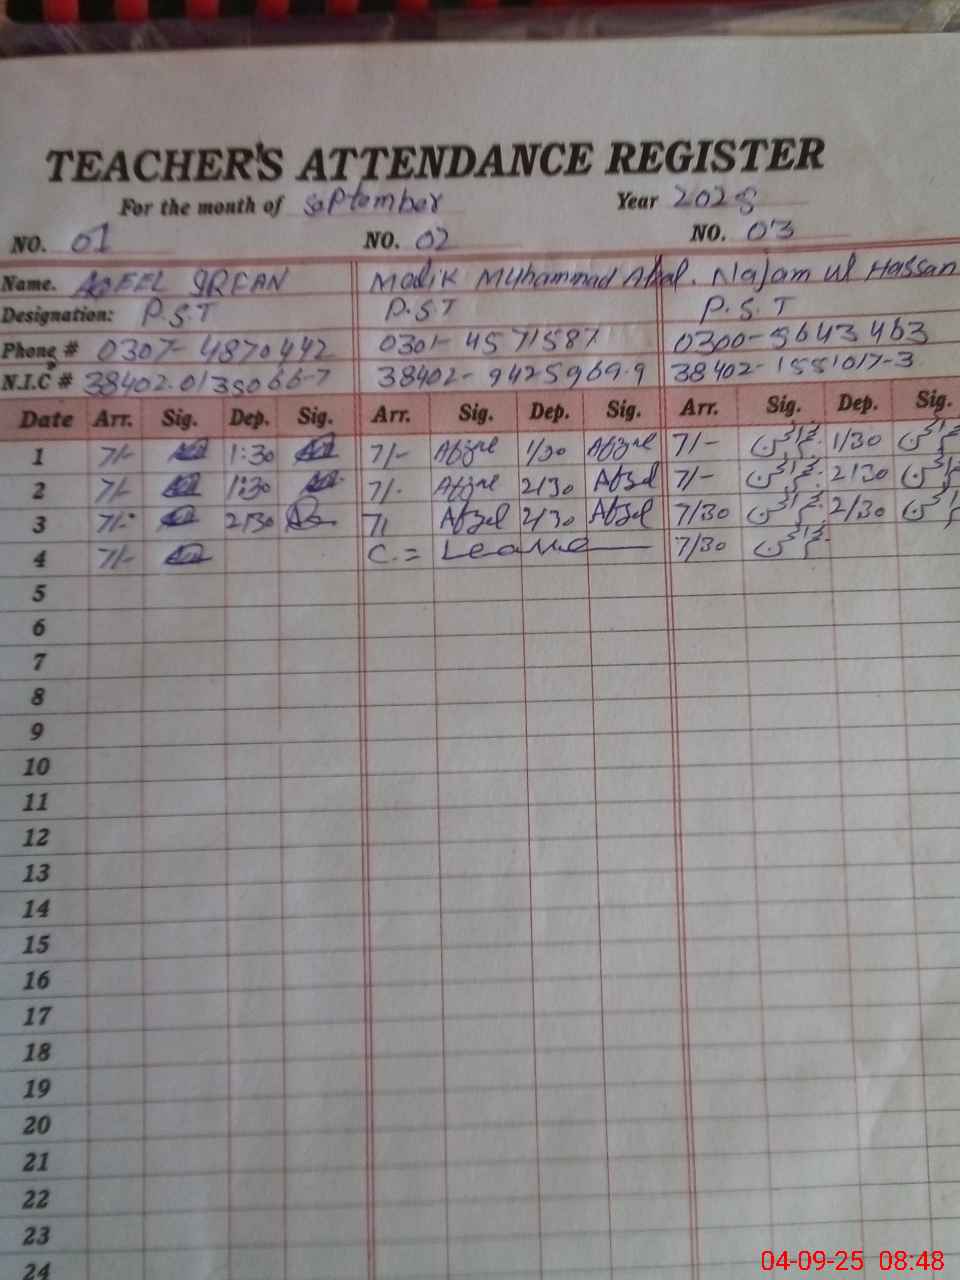 TEACHER'S ATTENDANCE REGISTER
For the month of September Year 2025
NO. 01 NO. 02 NO. 03
Name. Malik Muhammad Najam ul Hassan
Designation: P.S.T P.S.T P.S.T
Phone # 0307-4870442 0301-4571587 0300-5643463
N.I.C # 38402-0135066-7 38402-9425969-9 38402-1551017-3
Date Arr. Sig. Dep. Sig. Arr. Sig. Dep. Sig. Arr. Sig. Dep. Sig.
1 7/- 1:30 7/- Afzal 1/30 Afzal 7/- 1/30
2 7/- 1:30 7/- Afzal 2/30 Afzal 7/- 2/30
3 7/- 2/30 7/ Afzal 2/30 Afzal 7/30 2/30
4 7/- C.= Leave 7/30
5
6
7
8
9
10
11
12
13
14
15
16
17
18
19
20
21
22
23
24
04-09-25 08:48